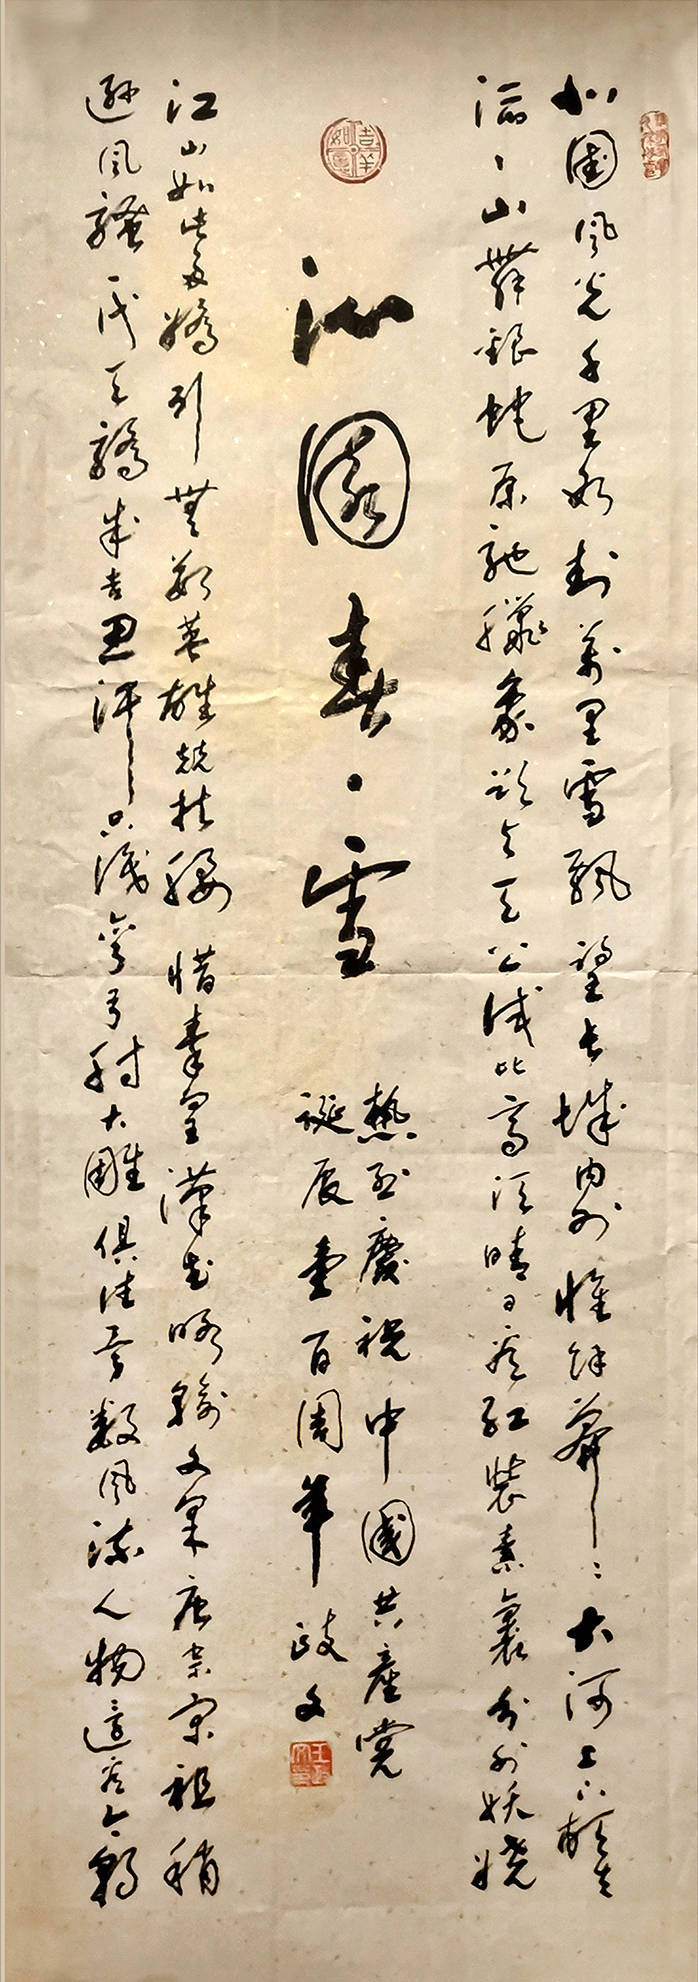 北國風光千里冰封萬里雪飄望長城内外惟餘莽〻大河上下頓失
滔〻山舞銀蛇原馳臘象欲与天公试比高須晴日看紅裝素裹分外妖嬈
吉祥如意
沁園春·雪
熱烈慶祝中國共產黨
誕辰壹百周年 歧文
江山如此多嬌引無數英雄競折腰 惜秦皇漢武略輸文采唐宗宋祖稍
遜風騷一代天驕成吉思汗只識彎弓射大雕俱往矣數風流人物還看今朝